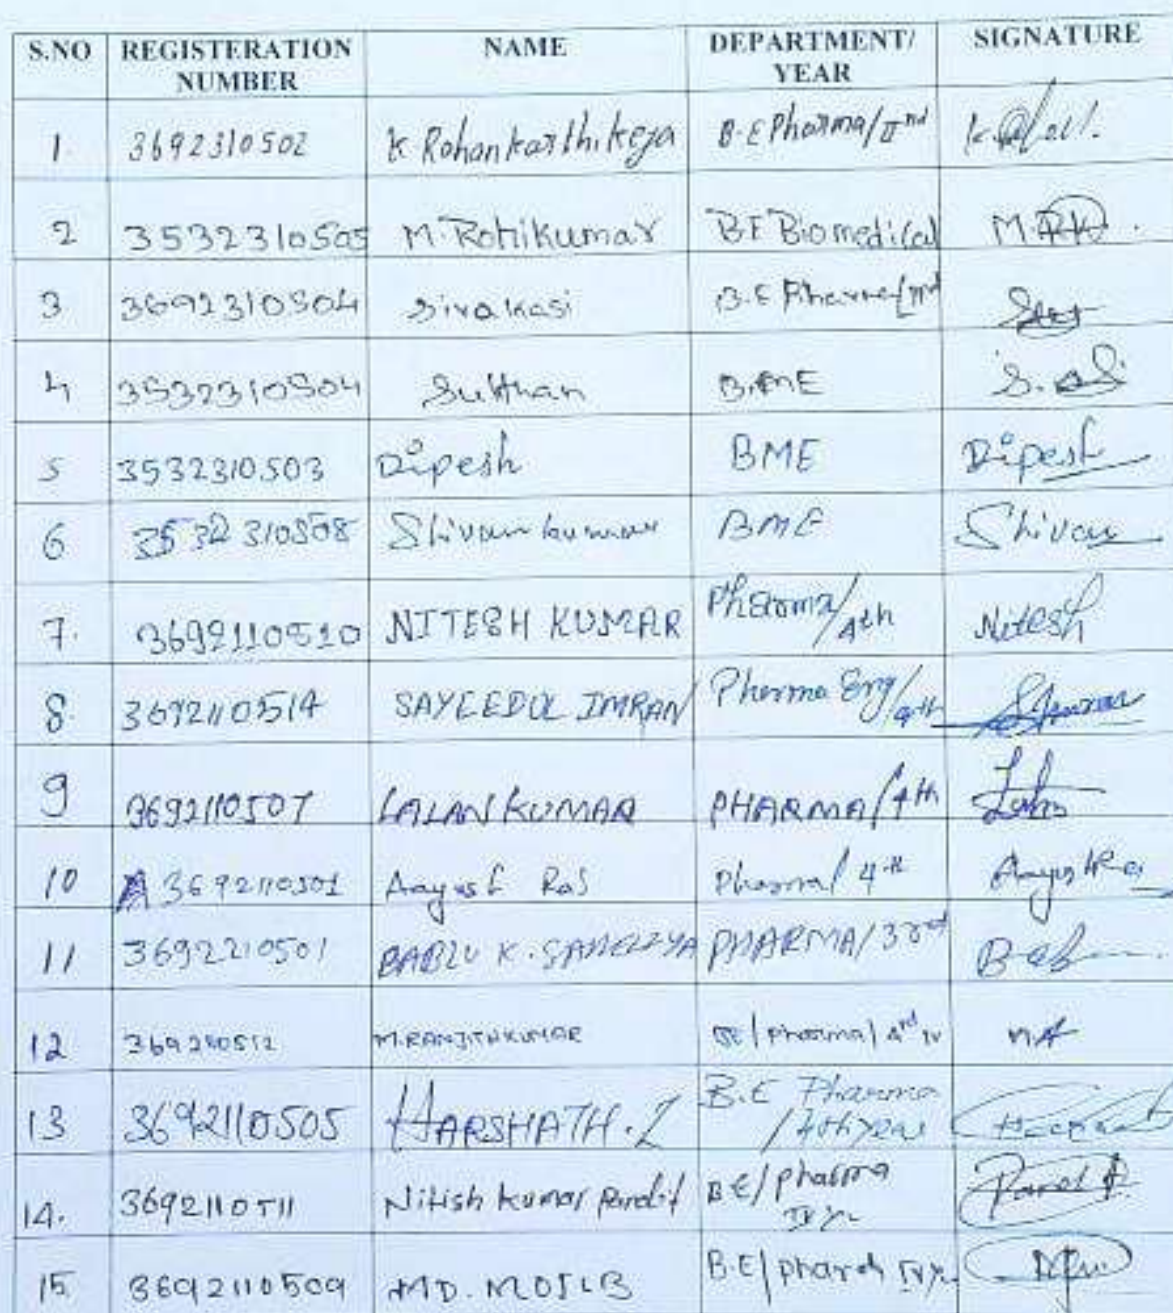 S.NO REGISTERATION NUMBER NAME DEPARTMENT/ YEAR SIGNATURE
1. 3692310502 K Rohan karthikeya B.E Pharma/IInd
2 3532310505 M. Rohikumar B.E Biomedical M.RK
3 3692310504 Sivakasi B.E Pharma/IInd
4 3532310504 Sulthan B.ME
5 3532310503 Dipesh BME Dipesh
6 3532310508 Shivam kumar BME Shivam
7. 3692110510 NITESH KUMAR Pharma/4th Nitesh
8. 3692110514 SAYEEDUL IMRAN Pharma Eng/4th
9 3692110507 LALAN KUMAR PHARMA/4th
10 3692110501 Aayush Raj Pharma/4th Aayush Raj
11 3692210501 BABLU K. PHARMA/3rd
12 M.RANJITHKUMAR BE/Pharma/4rd IV
13 3692110505 HARSHATH.Z B.E Pharma /4th year
14. 3692110511 Nitish kumar Pandit BE/pharma IV yr Pandit
15 3692110509 MD. MOJIB B.E/pharma IV yr